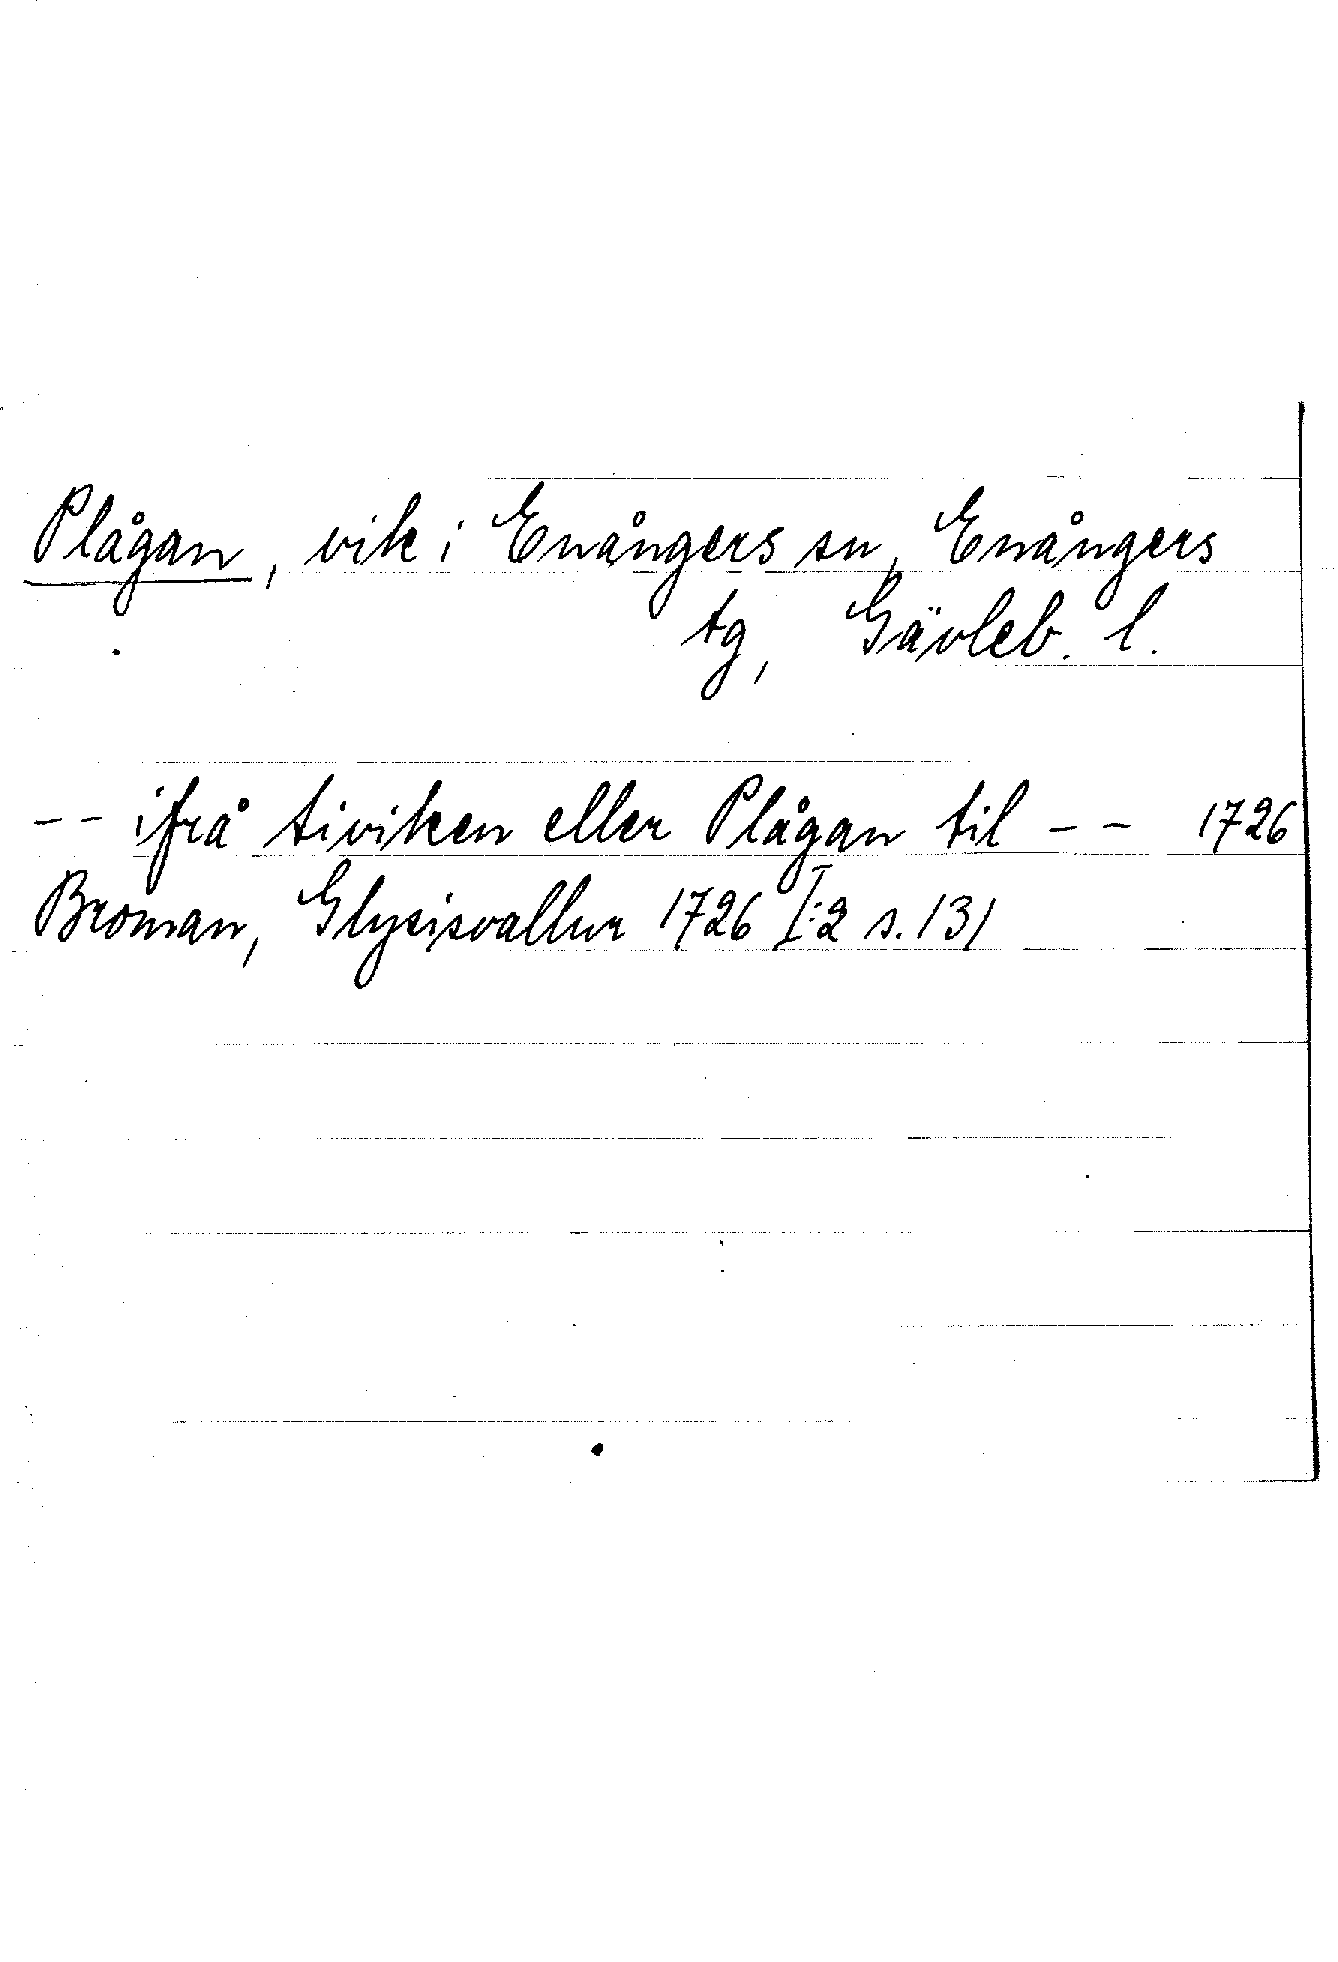 Plågan, vik i Enångers sn, Enångers
tg, Gävleb. l.
-- ifrå tiviken eller Plågan til -- 1726
Broman, Glysisvallur 1726 I:2 s. 131